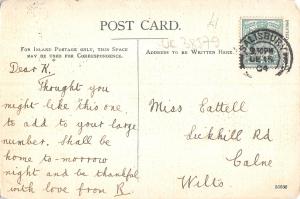 POST CARD.
FOR INLAND POSTAGE ONLY, THIS SPACE
MAY BE USED FOR CORRESPONDENCE.
ADDRESS TO BE WRITTEN HERE.
SALISBURY
Dear K.
Thought you
might like this one
to add to your large
number. Shall be
home to-morrow
night and be thankful
with love from R
Miss Eattell
Rd
Calne
Wilts.